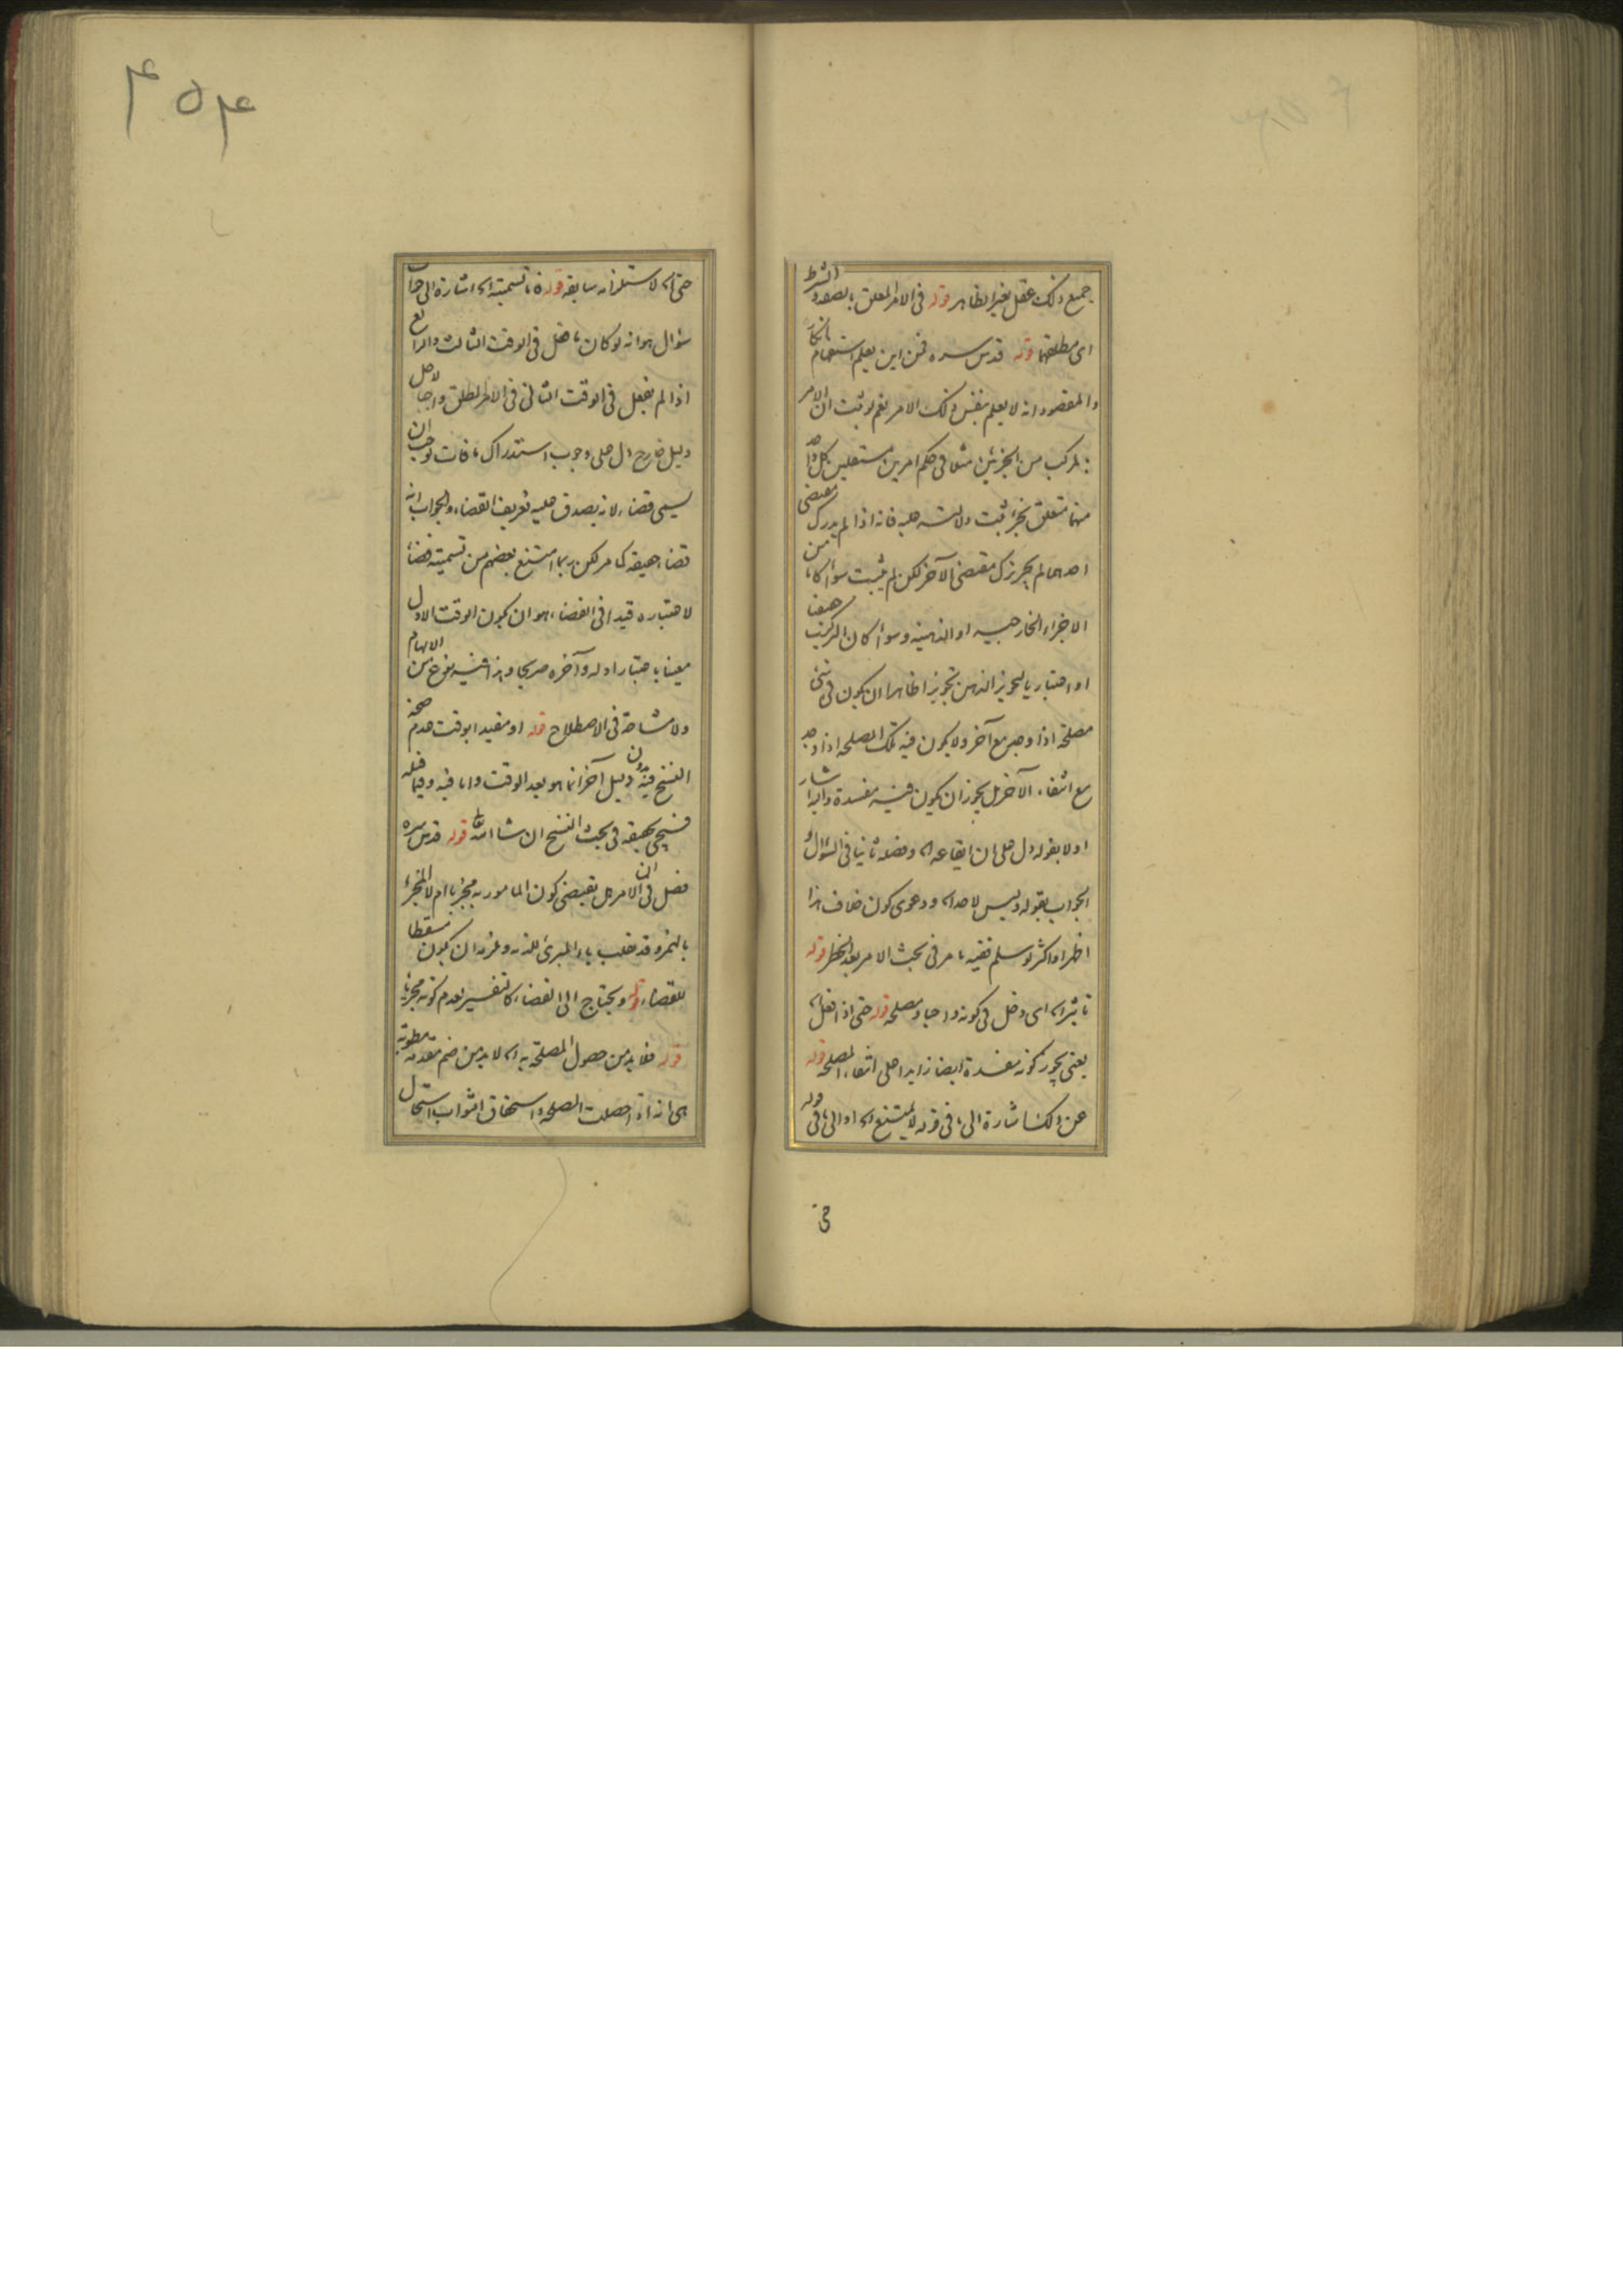 جميع ذلك عقل بغير الظاهر قوله فى الامر المعلق بالصفة والشرط
اى مطلقهما قوله قدس سره فمن اين يعلم استفهام بانكار
والمقصود انه لا يعلم بنفس ذلك الامر نعم لو ثبت ان الامر
بالمركب من الجزئين مثلا فى حكم امرين مستقلين كل واحد
منهما متعلق بجزء ثبت دلالته عليه فانه اذا لم يدرك مقتضى
احدهما لم يجز ترك مقتضى الآخر لكن لم يثبت سواء كانا من
الاجزاء الخارجية او الذهنية وسواء كان التركيب حقيقيا
او اعتباريا لتجويز الذهن تجويزا ظاهرا ان يكون فى شئ
مصلحة اذا وجد مع آخر ولا يكون فيه تلك المصلحة اذا وجد
مع انتفاء الآخر بل يجوز ان يكون فيه مفسدة واليه اشار
اولا بقوله دل على ان ايقاعه اه وفصله ثانيا فى السؤال و
الجواب بقوله وليس لاحد اه ودعوى كون خلاف هذا
اظهر او اكثر لو سلم ففيه ما مر فى بحث الامر بعد الحظر قوله
تأثير اه اى دخل فى كونه واجبا ومصلحة قوله حتى اذا فعل اه
يعنى يجوز كونه مفسدة ايضا زايدا على انتفاء المصلحة قوله
عن ذلك اشارة الى ما فى قوله لا يمتنع اه او الى ما فى قوله
حتى
۴۵۴
حتى اه لاستلزامه سابقه قوله فاما تسميته اه اشارة الى جواب
سؤال هو انه لو كان ما فعل فى الوقت الثالث والرابع
اذا لم يفعل فى الوقت الثانى فى الامر المطلق واجبا لاجل
دليل خارج دل على وجوب استدراك ما فات لوجب ان
يسمى قضاء لانه يصدق عليه تعريف القضاء والجواب انه
قضاء حقيقة كما مر لكن ربما امتنع بعضهم من تسميته قضاء
لاعتباره قيدا فى القضاء هو ان يكون الوقت الاول
معينا باعتبار اوله وآخره صريحا وهذا فيه نوع من الابهام
ولا مشاحة فى الاصطلاح قوله او مقيدا بوقت عدم صحة
النسخ فيه بدون دليل آخر انما هو بعد الوقت واما فيه وفيما قبله
فسيجئ تحقيقه فى بحث النسخ ان شاء الله تعالى قوله قدس سره
فصل فى ان الامر هل يقتضى كون المامور به مجزيا ام لا المجزئ
بالهمز وقد تقلب ياء المبرئ للذمة ولزمه ان يكون مسقطا
للقضاء قوله ويحتاج الى القضاء كالتفسير لعدم كونه مجزيا
قوله فلا بد من حصول المصلحة به اه لا بد من ضم مقدمة مطوية
هى انه اذا حصلت المصلحة واستحقاق الثواب استحال